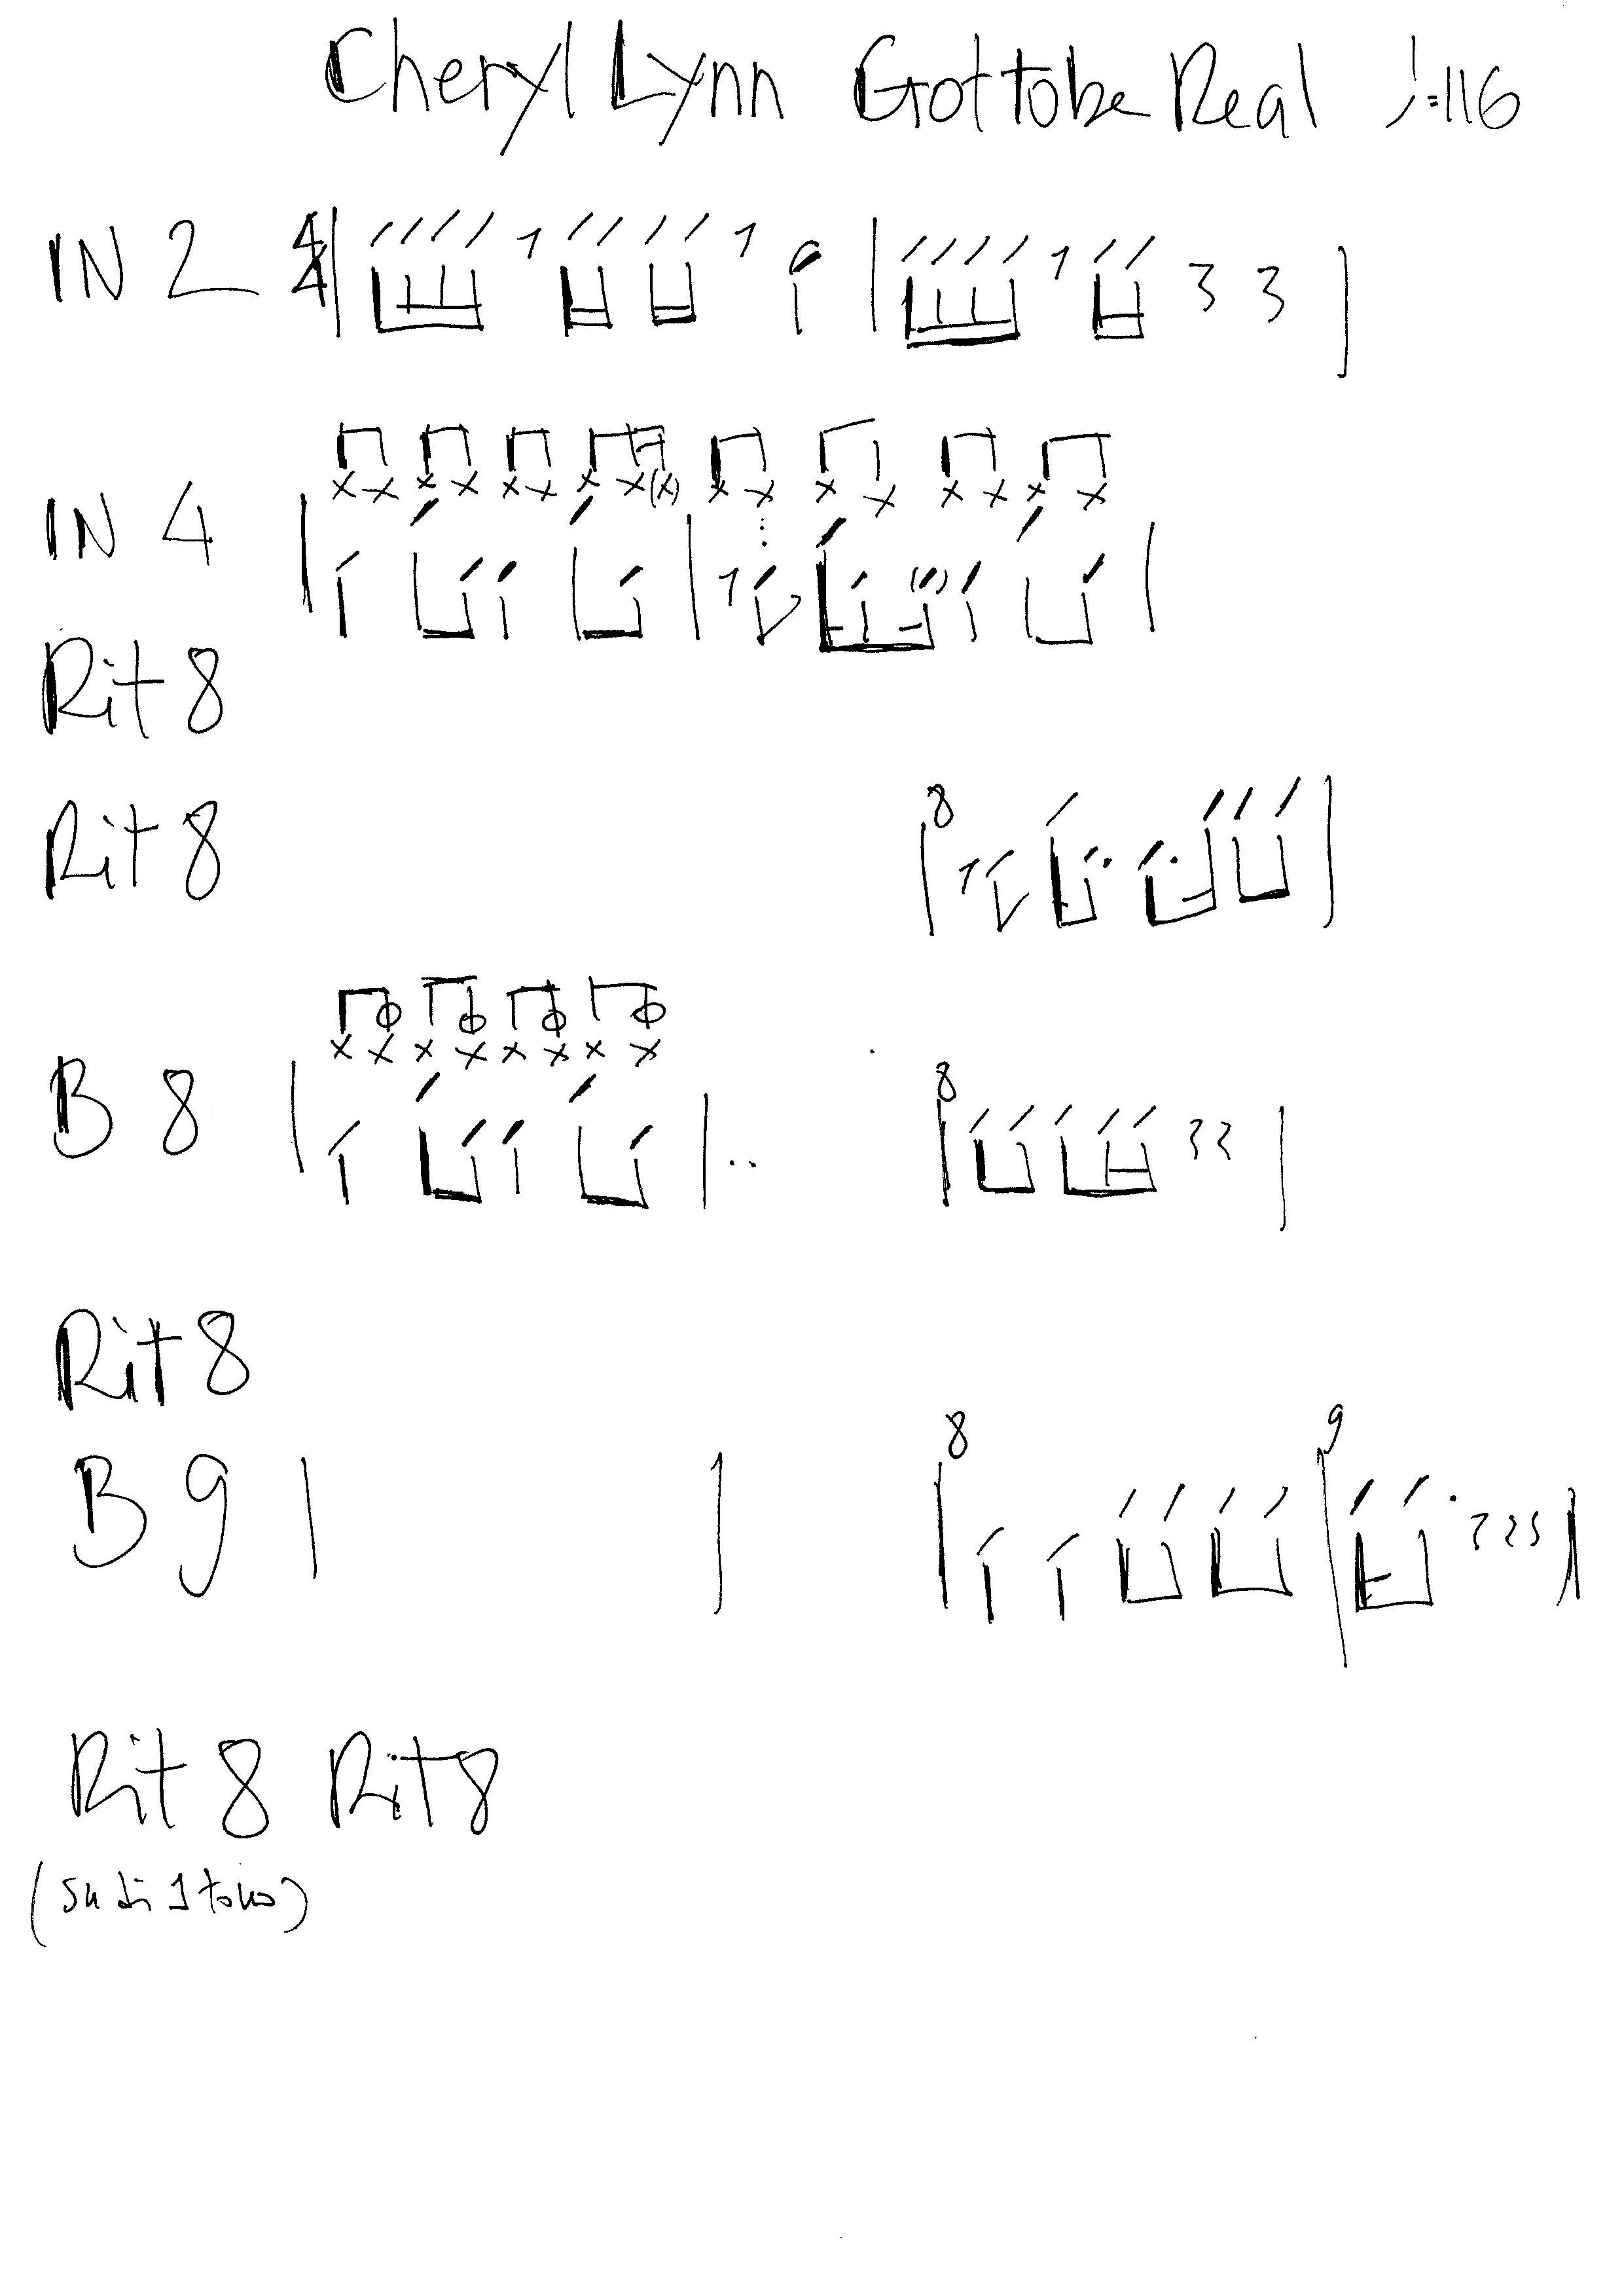 Cheryl Lynn Got to be Real ♩=116
IN 2 4/4
IN 4
Rit 8
Rit 8 8
B 8 8
Rit 8
B 9 8 9
Rit 8 Rit 8
(su di 1 tono)